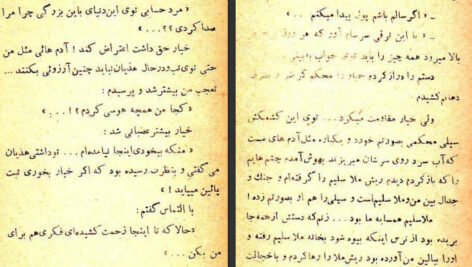 « مرد حسابی توی این دنیای باین بزرگی چرا مرا
صدا کردی ؟؟... »
خیار حق داشت اعتراض کند ! آدم هائی مثل من
حتی توی تب و در حال هذیان نباید چنین آرزوئی بکنند ...
تعجب من بیشتر شد و پرسیدم :
« کجا من همچه هوسی کردم ؟! ... »
خیار بیشتر عصبانی شد :
« منکه بیخودی اینجا نیامده‌ام ... تو داشتی هذیان
می گفتی و بنظرت رسیده بود که اگر خیار بخوری تبت
پائین میآید ! »
با التماس گفتم :
« حالا که تا اینجا زحمت کشیده‌ای فکری هم برای
من بکن ... »
ـ « اگر سالم باشم پول پیدا میکنم . . »
ـ « با این ترقی سرسام آور که هر روز
بالا میرود همه چیز را باید توی خواب به‌بینی
دستم را دراز کردم خیار را محکم گرفتم و بطرف
دهانم کشیدم
ولی خیار مقاومت میکرد ... توی این کشمکش
سیلی محکمی بصورتم خورد و یکباره مثل آدم های مست
که آب سرد روی سرشان میریزند بهوش آمدم چشم‌هایم
را که باز کردم دیدم ریش ملا سلیم را گرفته‌ام و جنگ و
جدال بین من و ملا سلیم است و سیلی را هم او بصورتم زده !
ملا سلیم همسایه ما بود ... زنم که دستش از همه جا
بریده بود از ترس اینکه بیوه شود بخانه ملا سلیم رفته و
اورا ببالین من آورده بود ریش ملا را رها کردم و با خجالت